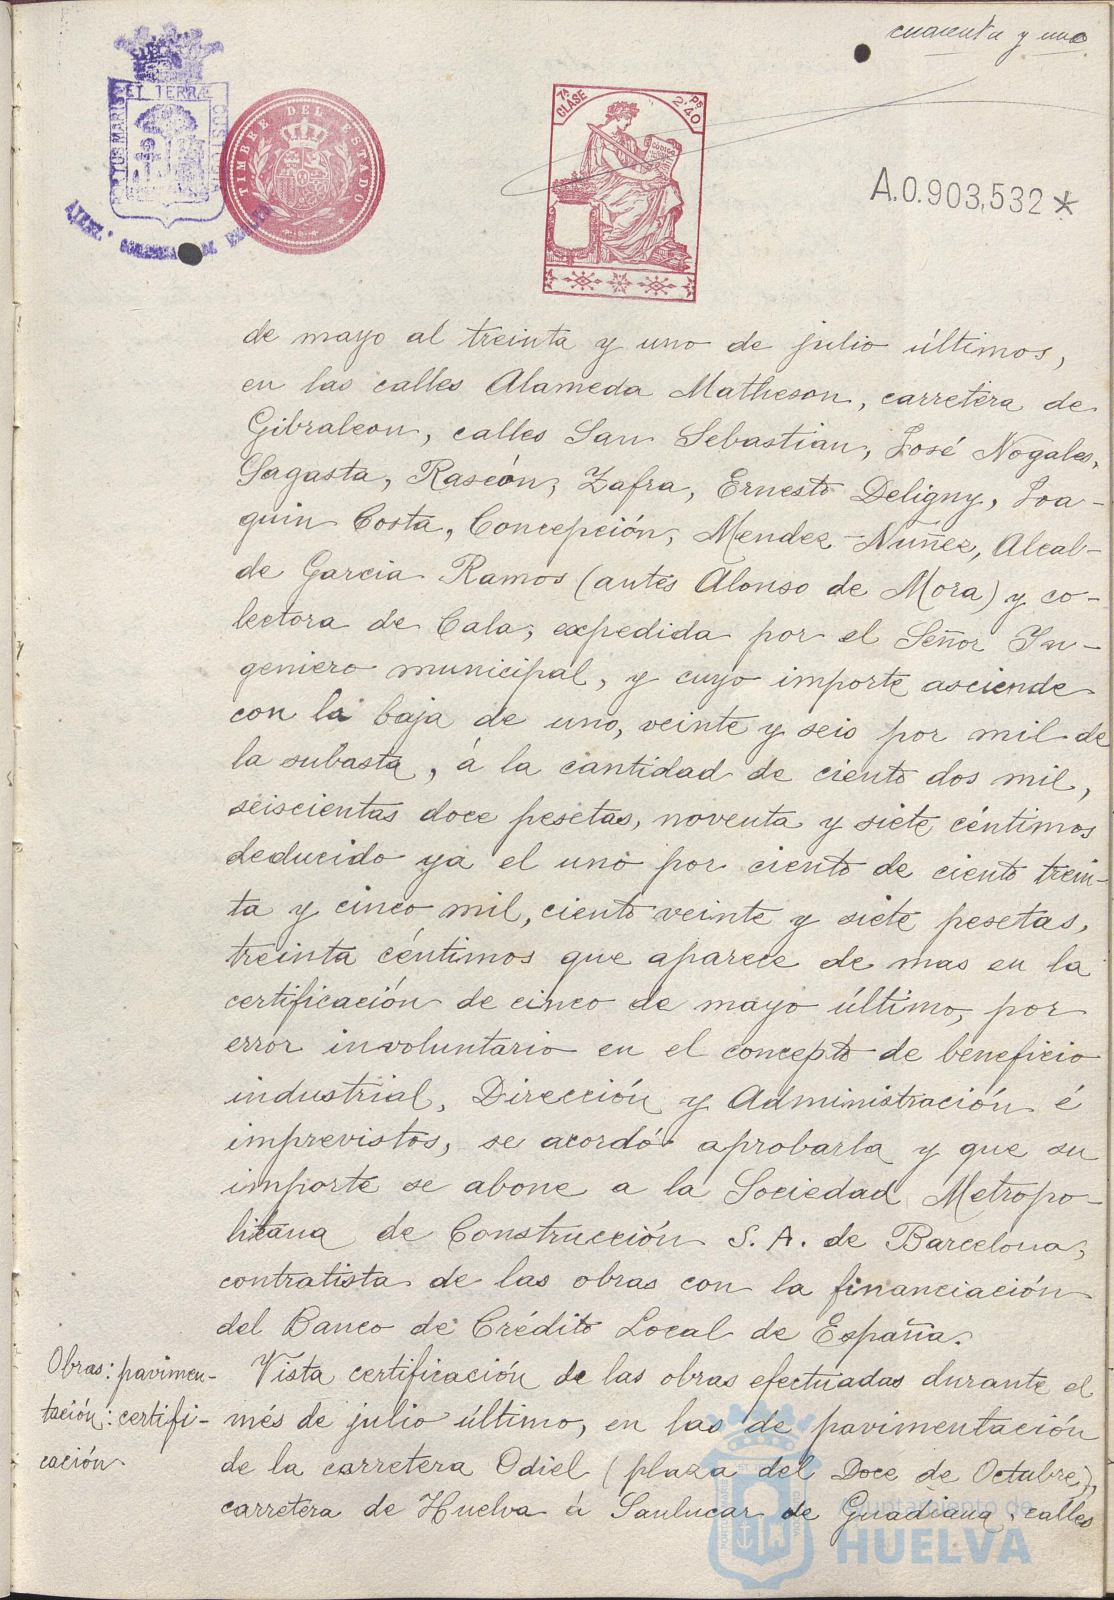 cuarenta y uno
PORTUS MARIS ET TERRÆ CUSTODIA
TIMBRE DEL ESTADO
7ª CLASE
Pts 2,40
CODIGO
A.0.903,532*
de mayo al treinta y uno de julio últimos,
en las calles Alameda Matheson, carretera de
Gibraleon, calles San Sebastian, José Nogales,
Sagasta, Rascón, Zafra, Ernesto Deligny, Joa-
quin Costa, Concepción, Mendez-Nuñez, Alcal-
de Garcia Ramos (antes Alonso de Mora) y co-
lectora de Cala, expedida por el Señor In-
geniero municipal, y cuyo importe asciende
con la baja de uno, veinte y seis por mil de
la subasta, á la cantidad de ciento dos mil,
seiscientas doce pesetas, noventa y siete céntimos
deducido ya el uno por ciento de ciento trein-
ta y cinco mil, ciento veinte y siete pesetas,
treinta céntimos que aparece de mas en la
certificación de cinco de mayo último, por
error involuntario en el concepto de beneficio
industrial, Dirección y Administración é
imprevistos, se acordó aprobarla y que su
importe se abone a la Sociedad Metropo-
litana de Construcción S. A. de Barcelona,
contratista de las obras con la financiación
del Banco de Crédito Local de España.
Obras: pavimen-
tación: certifi-
cación
Vista certificación de las obras efectuadas durante el
més de julio último, en las de pavimentación
de la carretera Odiel (plaza del Doce de Octubre),
carretera de Huelva á Sanlucar de Guadiana, calles
Ayuntamiento de
HUELVA